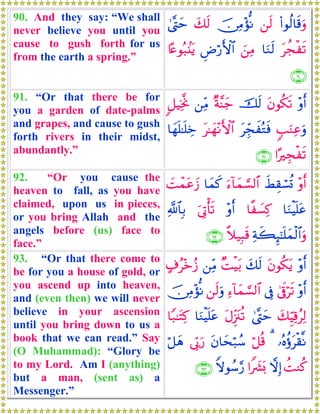 90. And they say: “We shall
never believe you until you
cause to gush forth for us
from the earth a spring.”
وَقَالُوا۟ لَن نُّؤْمِنَ لَكَ حَتَّىٰ
تَفْجُرَ لَنَا مِنَ ٱلْأَرْضِ يَنۢبُوعًا
٩٠
91. “Or that there be for
you a garden of date-palms
and grapes, and cause to gush
forth rivers in their midst,
abundantly.”
أَوْ تَكُونَ لَكَ جَنَّةٌ مِّن نَّخِيلٍ
وَعِنَبٍ فَتُفَجِّرَ ٱلْأَنْهَـٰرَ خِلَـٰلَهَا
تَفْجِيرًا ٩١
92. “Or you cause the
heaven to fall, as you have
claimed, upon us in pieces,
or you bring Allah and the
angels before (us) face to
face.”
أَوْ تُسْقِطَ ٱلسَّمَآءَ كَمَا زَعَمْتَ
عَلَيْنَا كِسَفًا أَوْ تَأْتِىَ بِٱللَّهِ
وَٱلْمَلَـٰٓئِكَةِ قَبِيلًا ٩٢
93. “Or that there come to
be for you a house of gold, or
you ascend up into heaven,
and (even then) we will never
believe in your ascension
until you bring down to us a
book that we can read.” Say
(O Muhammad): “Glory be
to my Lord. Am I (anything)
but a man, (sent as) a
Messenger.”
أَوْ يَكُونَ لَكَ بَيْتٌ مِّن زُخْرُفٍ
أَوْ تَرْقَىٰ فِى ٱلسَّمَآءِ وَلَن نُّؤْمِنَ
لِرُقِيِّكَ حَتَّىٰ تُنَزِّلَ عَلَيْنَا كِتَـٰبًا
نَّقْرَؤُهُۥ ۗ قُلْ سُبْحَانَ رَبِّى هَلْ
كُنتُ إِلَّا بَشَرًا رَّسُولًا ٩٣